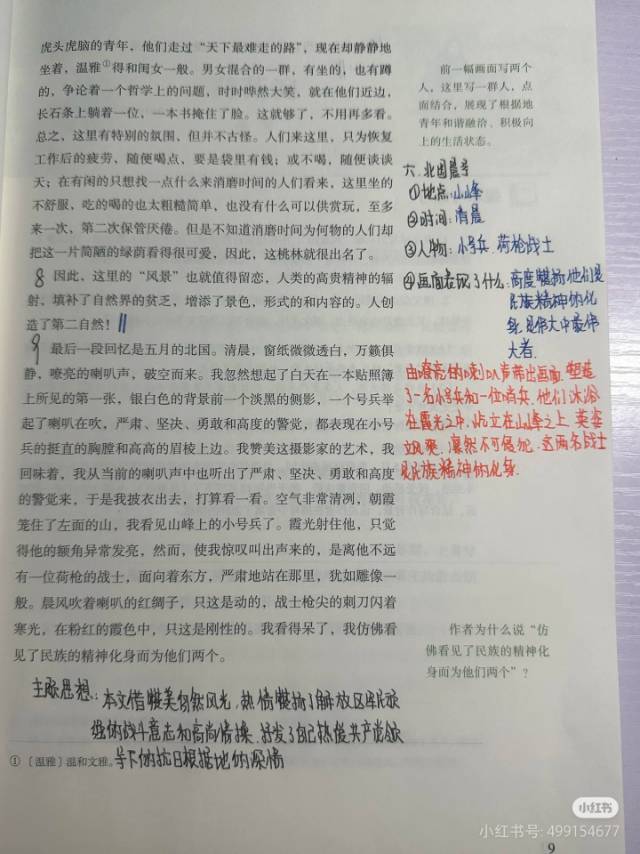 虎头虎脑的青年，他们走过“天下最难走的路”，现在却静静地
坐着，温雅①得和闺女一般。男女混合的一群，有坐的，也有蹲
的，争论着一个哲学上的问题，时时哗然大笑，就在他们近边，
长石条上躺着一位，一本书掩住了脸。这就够了，不用再多看。
总之，这里有特别的氛围，但并不古怪。人们来这里，只为恢复
工作后的疲劳，随便喝点，要是袋里有钱；或不喝，随便谈谈
天；在有闲的只想找一点什么来消磨时间的人们看来，这里坐的
不舒服，吃的喝的也太粗糙简单，也没有什么可以供赏玩，至多
来一次，第二次保管厌倦。但是不知道消磨时间为何物的人们却
把这一片简陋的绿荫看得很可爱，因此，这桃林就很出名了。
8 因此，这里的“风景”也就值得留恋，人类的高贵精神的辐
射，填补了自然界的贫乏，增添了景色，形式的和内容的。人创
造了第二自然！
9 最后一段回忆是五月的北国。清晨，窗纸微微透白，万籁俱
静，嘹亮的喇叭声，破空而来。我忽然想起了白天在一本贴照簿
上所见的第一张，银白色的背景前一个淡黑的侧影，一个号兵举
起了喇叭在吹，严肃、坚决、勇敢和高度的警觉，都表现在小号
兵的挺直的胸膛和高高的眉棱上边。我赞美这摄影家的艺术，我
回味着，我从当前的喇叭声中也听出了严肃、坚决、勇敢和高度
的警觉来，于是我披衣出去，打算看一看。空气非常清冽，朝霞
笼住了左面的山，我看见山峰上的小号兵了。霞光射住他，只觉
得他的额角异常发亮，然而，使我惊叹叫出声来的，是离他不远
有一位荷枪的战士，面向着东方，严肃地站在那里，犹如雕像一
般。晨风吹着喇叭的红绸子，只这是动的，战士枪尖的刺刀闪着
寒光，在粉红的霞色中，只这是刚性的。我看得呆了，我仿佛看
见了民族的精神化身而为他们两个。
主题思想：本文借赞美自然风光，热情赞扬了解放区军民
的战斗意志和高尚情操，抒发了自己热爱共产党领
导下的抗日根据地的深情
① 〔温雅〕温和文雅。
前一幅画面写两个
人，这里写一群人，点
面结合，展现了根据地
青年和谐融洽、积极向
上的生活状态。
六.北国晨号
①地点:山峰
②时间:清晨
③人物:小号兵.荷枪战士
④画面表现了什么:高度赞扬他们是
民族精神的化
身,是伟大中最伟
大者.
由嘹亮的喇叭声带出画面.塑造
了一名小号兵和一位哨兵,他们沐浴
在霞光之中.屹立在山峰之上.英姿
飒爽.凛然不可侵犯.这两名战士
是民族精神的化身.
作者为什么说“仿
佛看见了民族的精神化
身而为他们两个”？
小红书
小红书号: 499154677
9